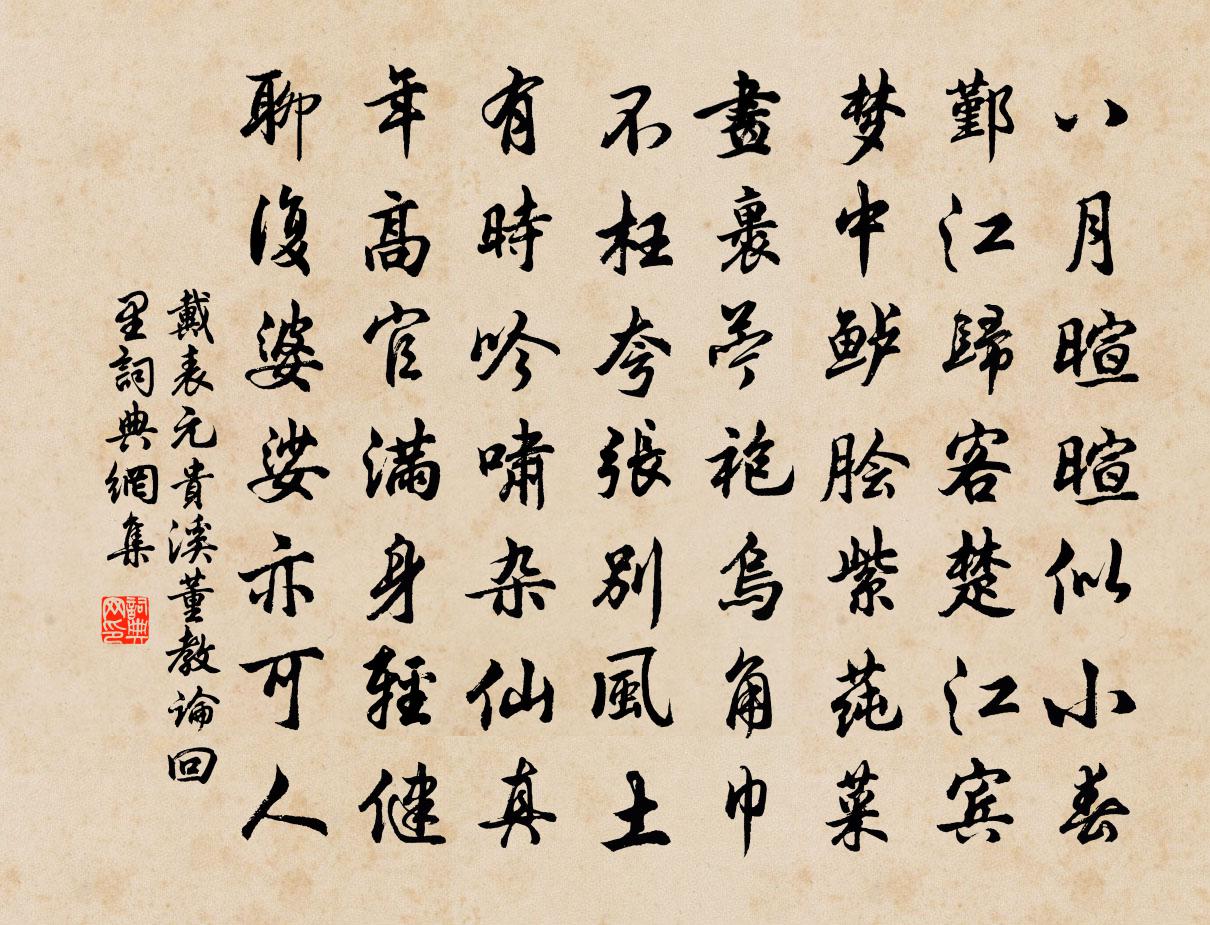 八月暄暄似小春
鄞江歸客楚江宾
梦中鲈脍紫莼菜
畫裏苎袍烏角巾
不枉夸張別風土
有時吟嘯杂仙真
年高官满身輕健
聊復婆娑亦可人
戴表元貴溪董教論回
里詞典網集
詞典网印